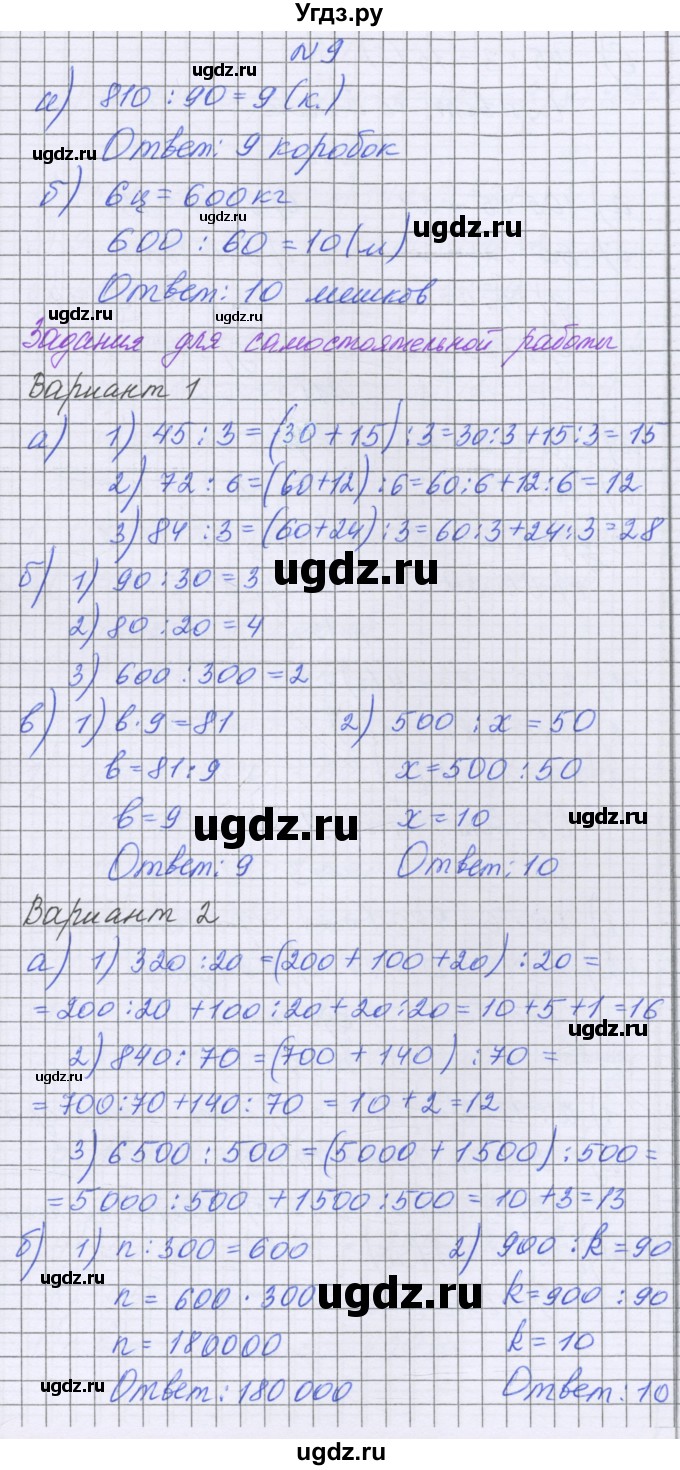 Угдз.ру
N 9
ugdz.ru
а) 810 : 90 = 9 (к.)
ugdz.ru ugdz.ru
Ответ: 9 коробок
б) 6ц = 600кг
ugdz.ru ugdz.ru
600 : 60 = 10 (м)
Ответ: 10 мешков
ugdz.ru ugdz.ru
Задания для самостоятельной работы
Вариант 1
а) 1) 45 : 3 = (30 + 15) : 3 = 30:3 + 15:3 = 15
2) 72 : 6 = (60+12) : 6 = 60:6 + 12:6 = 12
3) 84 : 3 = (60+24) : 3 = 60:3 + 24:3 = 28
ugdz.ru
б) 1) 90 : 30 = 3
2) 80 : 20 = 4
3) 600 : 300 = 2
в) 1) в · 9 = 81 2) 500 : x = 50
в = 81 : 9 x = 500 : 50
в = 9 x = 10
ugdz.ru ugdz.ru
Ответ: 9 Ответ: 10
Вариант 2
а) 1) 320 : 20 = (200 + 100 + 20) : 20 =
= 200 : 20 + 100 : 20 + 20 : 20 = 10 + 5 + 1 = 16
ugdz.ru
2) 840 : 70 = (700 + 140) : 70 =
ugdz.ru
= 700:70 + 140 : 70 = 10 + 2 = 12
3) 6500 : 500 = (5000 + 1500) : 500 =
= 5000 : 500 + 1500 : 500 = 10 + 3 = 13
б) 1) n : 300 = 600 2) 900 : k = 90
ugdz.ru ugdz.ru
n = 600 · 300 k = 900 : 90
n = 180000 k = 10
ugdz.ru
Ответ: 180 000 Ответ: 10
ugdz.ru